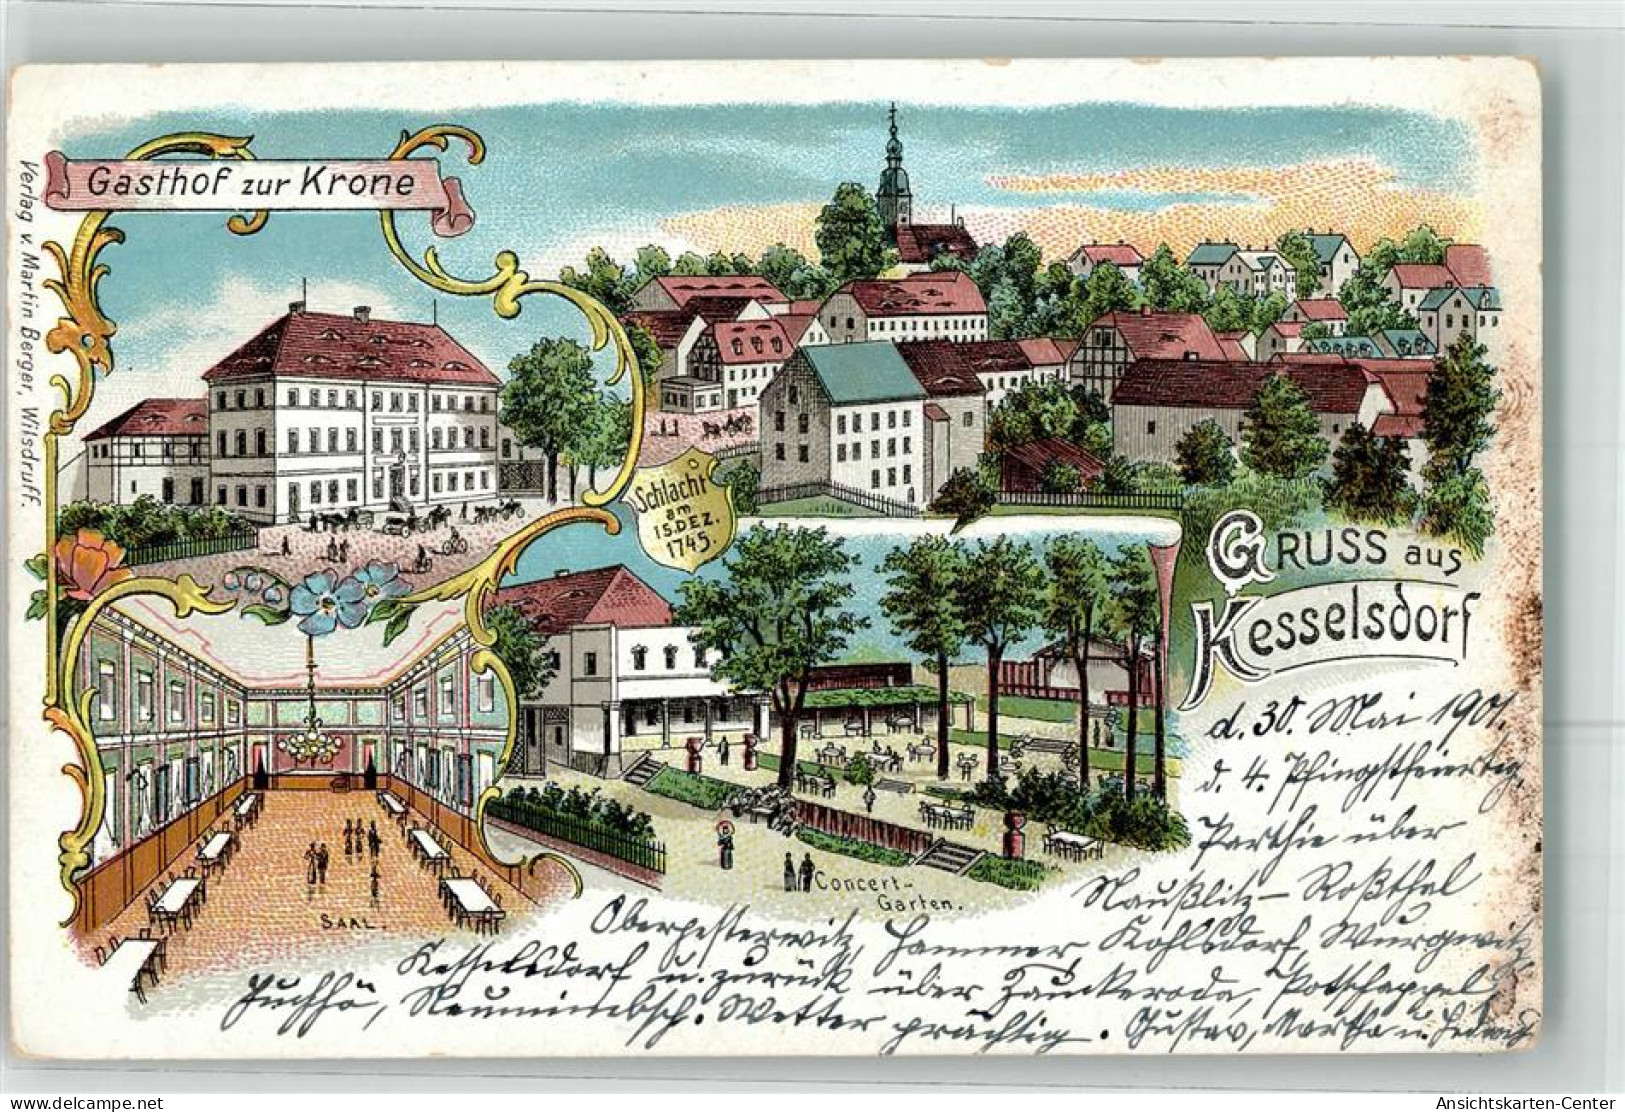 Gasthof zur Krone
Verlag v. Martin Berger, Wilsdruff.
Schlacht
am
15. DEZ.
1745.
GRUSS aus
Kesselsdorf
SAAL.
Concert-
Garten.
d. 30. Mai 1901.
d. 4. Pfingstfeiertig,
Parthie über
Naußlitz – Roßthal
Oberpesterwitz, Hammer, Kohlsdorf, Wurgwitz,
Kesselsdorf u. zurück über Zauckeroda, Potschappel
, . Wetter prächtig. Gustav, Martha u. Hedwig
Ansichtskarten-Center